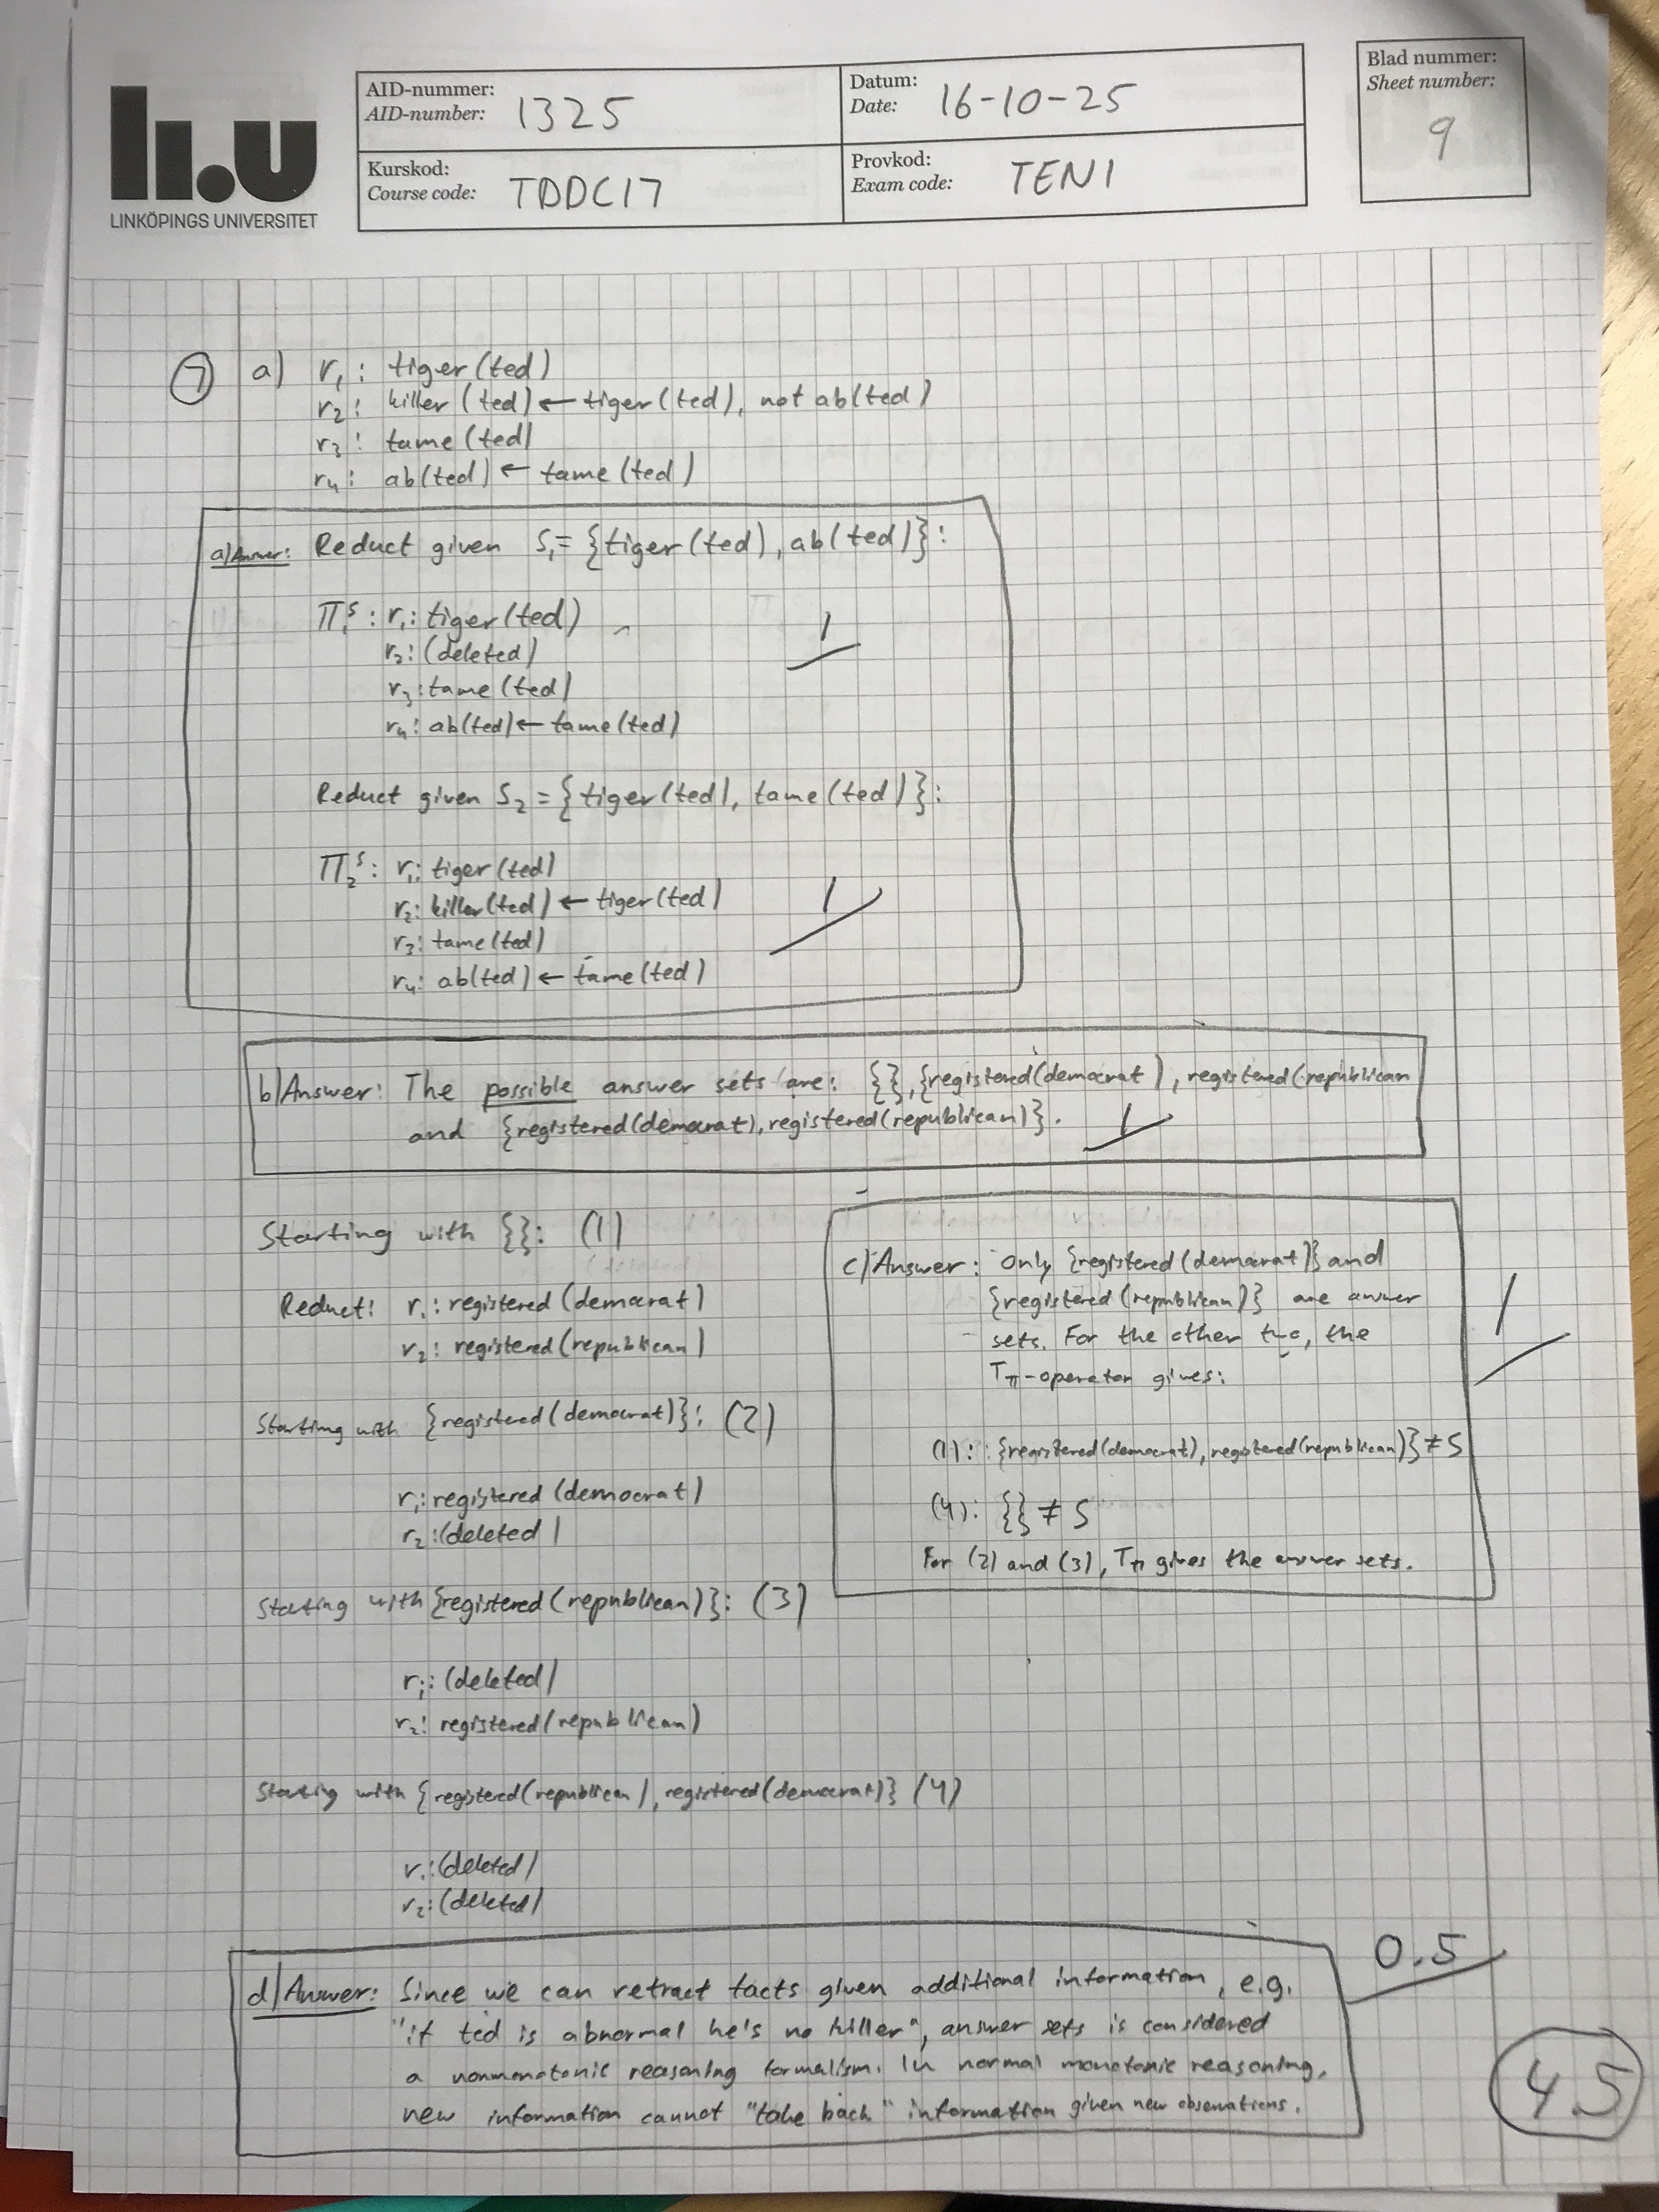 li.u
LINKÖPINGS UNIVERSITET
AID-nummer:
AID-number: 1325
Datum:
Date: 16-10-25
Blad nummer:
Sheet number:
9
Kurskod:
Course code: TDDC17
Provkod:
Exam code: TEN1
7 a) r1: tiger(ted)
r2: killer(ted) ← tiger(ted), not ab(ted)
r3: tame(ted)
r4: ab(ted) ← tame(ted)
a) Answer: Reduct given S1 = {tiger(ted), ab(ted)}:
Π1^S: r1: tiger(ted)
r2: (deleted)
r3: tame(ted)
r4: ab(ted) ← tame(ted)
1
Reduct given S2 = {tiger(ted), tame(ted)}:
Π2^S: r1: tiger(ted)
r2: killer(ted) ← tiger(ted)
r3: tame(ted)
r4: ab(ted) ← tame(ted)
1
b) Answer: The possible answer sets are: {}, {registered(democrat), registered(republican
and {registered(democrat), registered(republican)}.
1
Starting with {}: (1)
Reduct: r1: registered(democrat)
r2: registered(republican)
Starting with {registered(democrat)}: (2)
r1: registered(democrat)
r2: (deleted)
Starting with {registered(republican)}: (3)
r1: (deleted)
r2: registered(republican)
Starting with {registered(republican), registered(democrat)} (4)
r1: (deleted)
r2: (deleted)
c) Answer: Only {registered(democrat)} and
{registered(republican)} are answer
sets. For the other two, the
TΠ-operator gives:
(1): {registered(democrat), registered(republican)} ≠ S
(4): {} ≠ S
For (2) and (3), TΠ gives the answer sets.
1
d) Answer: Since we can retract facts given additional information, e.g.
"if ted is abnormal he's no killer", answer sets is considered
a nonmonotonic reasoning formalism. In normal monotonic reasoning,
new information cannot "take back" information given new observations.
0.5
4.5